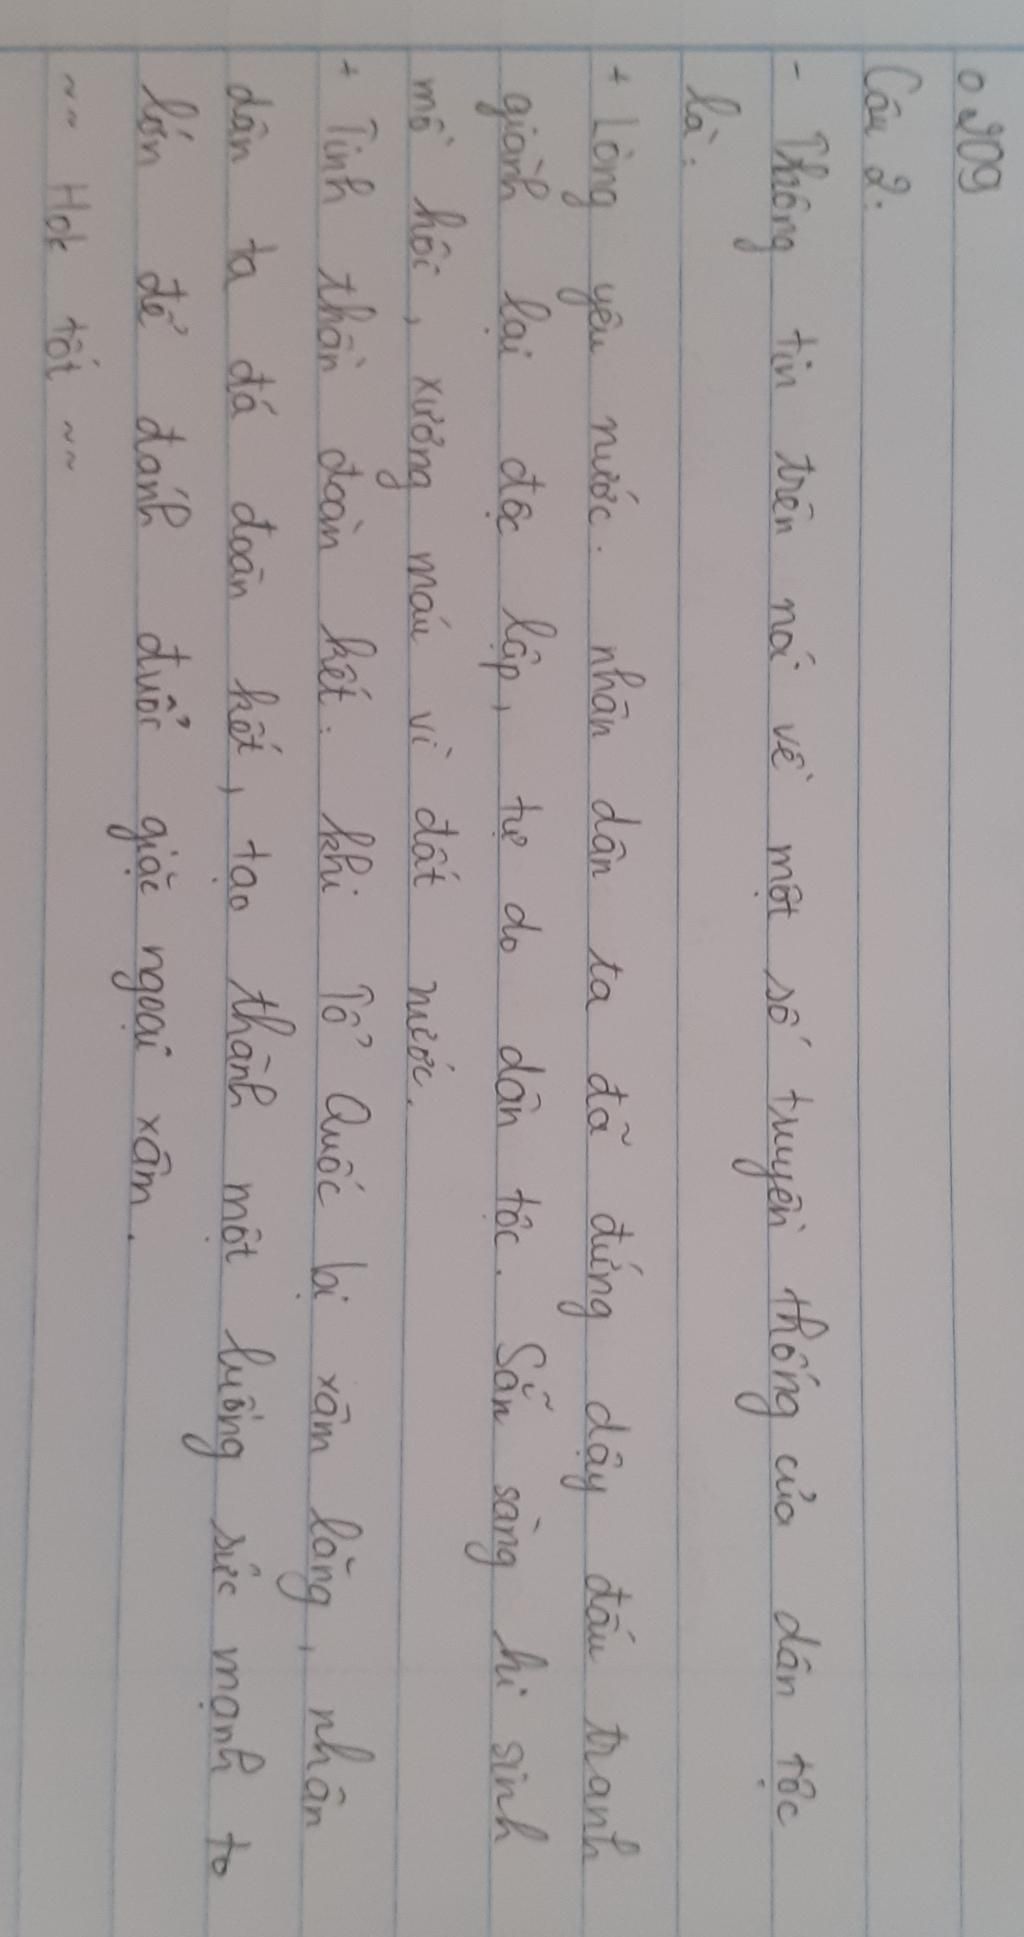 0209
Câu 2:
- Thông tin trên nói về một số truyền thống của dân tộc
là:
+ Lòng yêu nước. nhân dân ta đã đứng dậy đấu tranh
giành lại độc lập, tự do dân tộc. Sẵn sàng hi sinh
mồ hôi, xương máu vì đất nước.
+ Tinh thần đoàn kết. khi Tổ Quốc bị xâm lăng, nhân
dân ta đã đoàn kết, tạo thành một luồng sức mạnh to
lớn để đánh đuổi giặc ngoại xâm.
~~ Hok tốt ~~